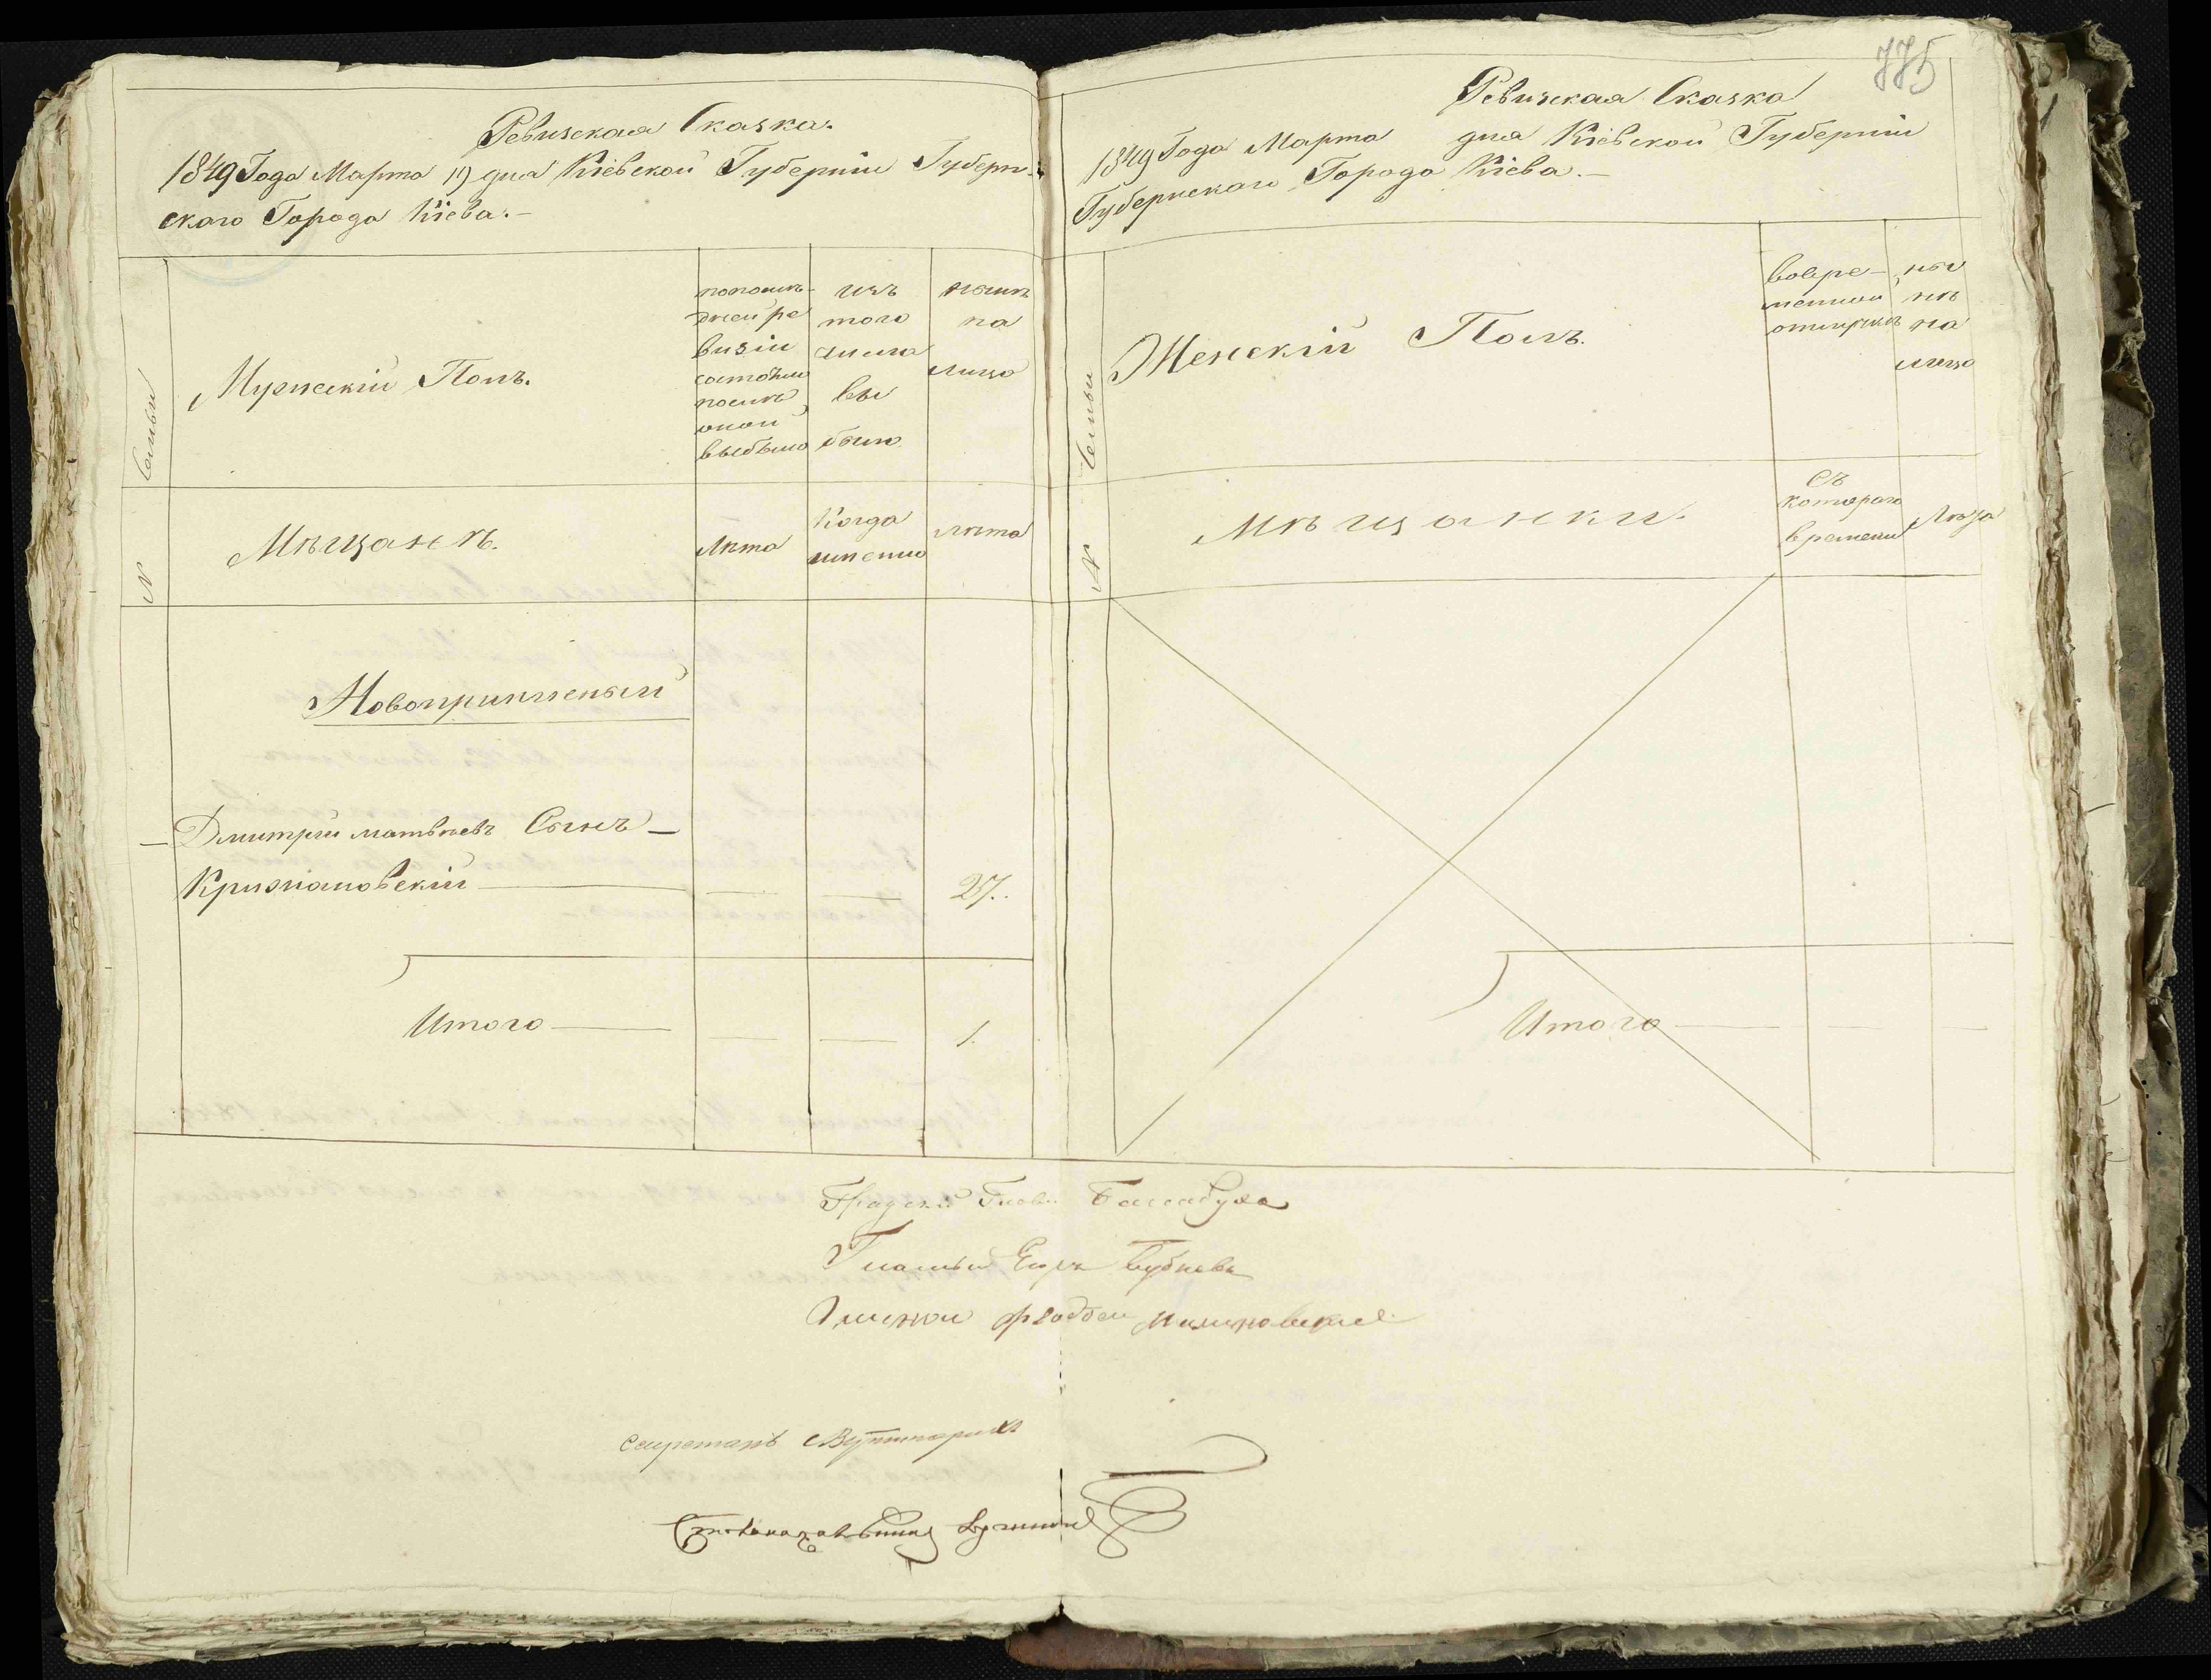 Ревизская Сказка.
1849 Года Марта 19 дня Кіевской Губерніи Губерн-
скаго Города Кіева.-
№ Семьи
Мужескій Полъ.
по послѣ-
дней ре
визіи
состояло
и послѣ
оной
выбыло
изъ
того
числа
вы
было
нынѣ
на
лицо
Мѣщанъ.
Лѣта
Когда
имянно
Лѣта
Новопричисленный
Дмитрій Матвѣевъ Сынъ
Крижановскій — — 27.
Итого — — 1.
775
Ревизская Сказка
1849 Года Марта дня Кіевской Губерніи
Губернскаго Города Кіева.-
№ Семьи
Женскій Полъ.
во вре-
менной
отлучкѣ
ны
нѣ
на
лицо
Мѣщанки.
съ
котораго
времени
Лѣта
Итого — — —
Градскій Глава Балабуха
Гласный Бубновъ
Гласный
Секретарь